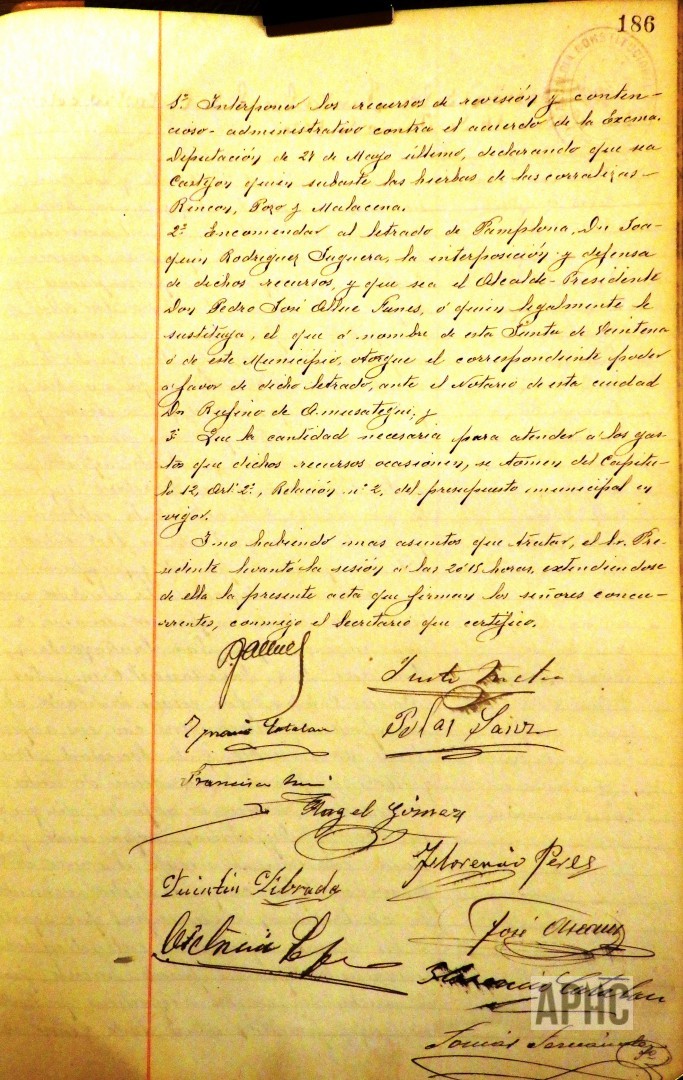 186
1º Interponer los recursos de revisión y conten-
cioso-administrativo contra el acuerdo de la Excma.
Diputación de 27 de Mayo último, declarando que sea
Castejon quien subaste las hierbas de las corralizas
Rincon, Pozo y Malacena.
2º Encomendar al letrado de Pamplona, Dn Joa-
quin Rodriguez la interposición y defensa
de dichos recursos, y que sea el Alcalde-Presidente
Don Pedro José Allué Funes, ó quien legalmente le
sustituya, el que á nombre de esta Junta de Veintena
ó de este Municipio, otorgue el correspondiente poder
a favor de dicho letrado, ante el Notario de esta ciudad
Dn Rufino de Amusategui; y
3º Que la cantidad necesaria para atender á los gas-
tos que dichos recursos ocasionen, se tomen del Capitu-
lo 12, Artº 2º, Relación nº 2, del presupuesto municipal en
vigor.
Y no habiendo mas asuntos que tratar, el Sr. Pre-
sidente levantó la sesión á las 20'15 horas, extendiendose
de ella la presente acta que firman los señores concu-
rrentes, conmigo el Secretario que certifico.
P. Allué
Justo
Ignacio Catalan
Blas Sainz
Francisco
Angel Gómez
Florencio Perez
Quintin Librada
José
Catalan
APHC
Tomás Fernández